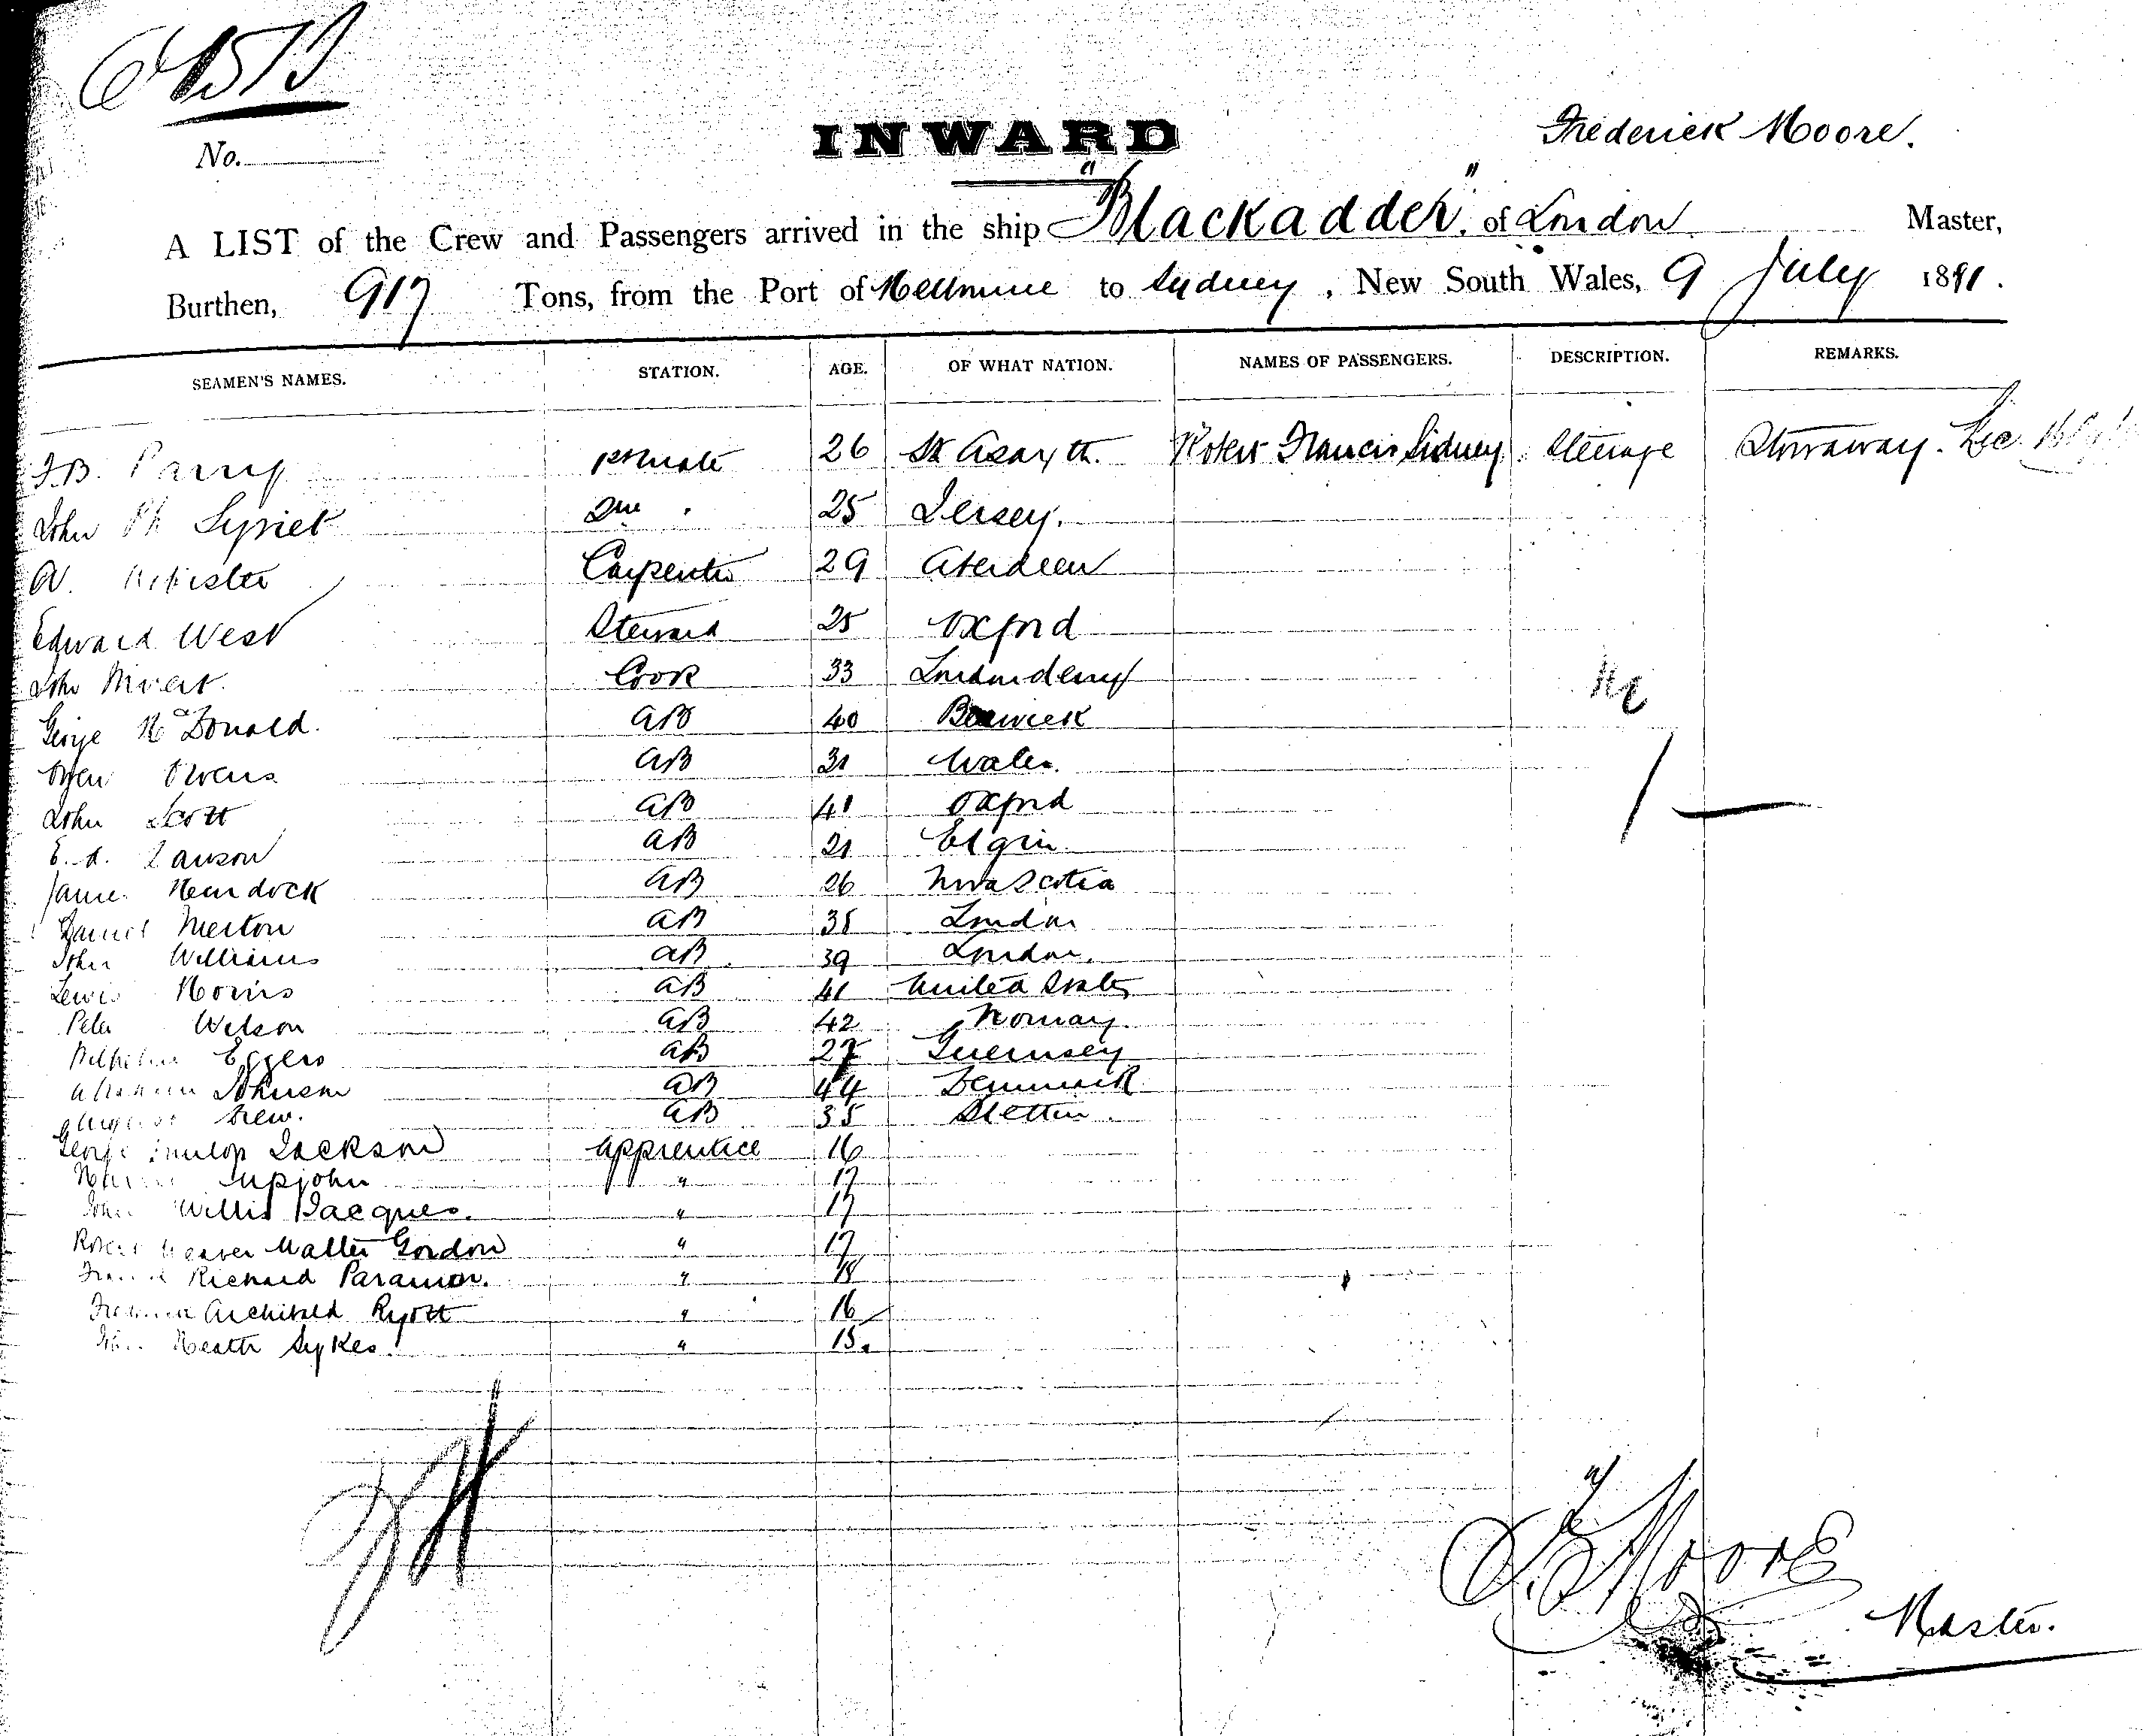 No.
INWARD
Frederick Moore.
A LIST of the Crew and Passengers arrived in the ship "Blackadder" of London Master,
Burthen, 917 Tons, from the Port of Melbourne to Sydney, New South Wales, 9 July 1891.
SEAMEN'S NAMES. STATION. AGE. OF WHAT NATION. NAMES OF PASSENGERS. DESCRIPTION. REMARKS.
J.B. Parry 1st Mate 26 St Asaph Robert Francis Sidney Steerage Stowaway.
John Ph Syvret 2nd " 25 Jersey.
A. Carpenter 29 Aberdeen
Edward West Steward 25 Oxford
John Cook 33 Londonderry
George McDonald. AB 40 Berwick
Owen Owens AB 31 Wales.
John Scott AB 41 Oxford
E. A. Lawson AB 21 Elgin
James Murdock AB 26 Nova Scotia
Daniel Merton AB 38 London
John Williams AB 39 London.
Lewis Morris AB 41 United States
Peter Wilson AB 42 Norway.
Wilhelm Eggers AB 27 Guernsey
Johnson AB 44 Denmark
August AB 35 Stettin.
George Dunlop Jackson apprentice 16
Upjohn " 17
John Willis Jacques. " 17
Robert Weaver Walter Gordon " 17
Francis Richard Paramor. " 18
Frederick Archibald Ryott " 16
Heath Sykes. " 15.
F. Moore
Master.